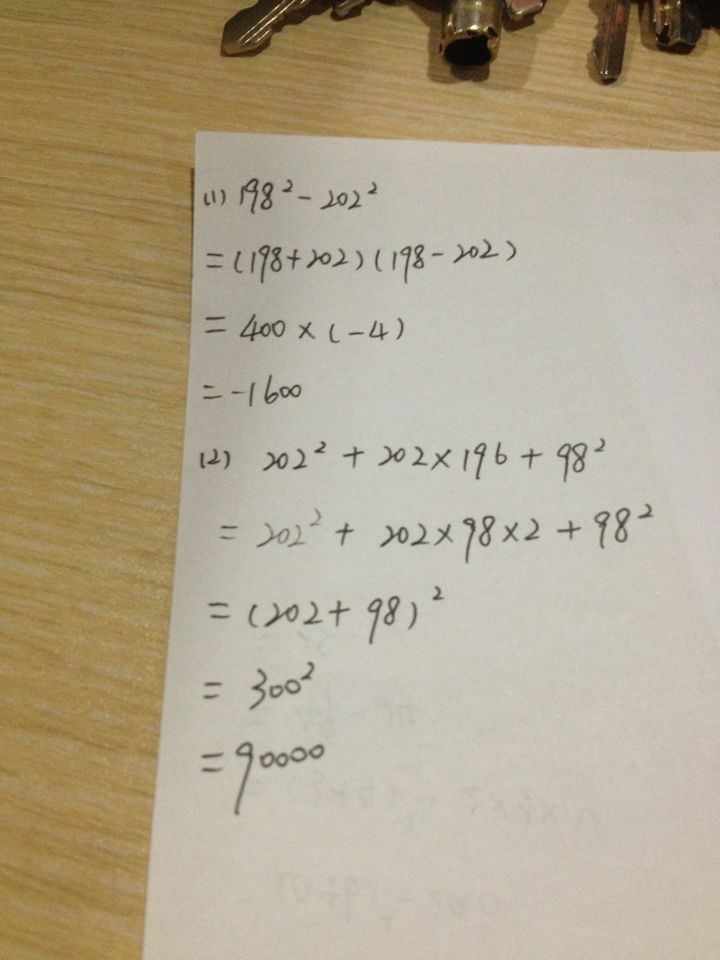 (1) 198² - 202²
= (198+202)(198-202)
= 400 × (-4)
= -1600
(2) 202² + 202×196 + 98²
= 202² + 202×98×2 + 98²
= (202+98)²
= 300²
= 90000